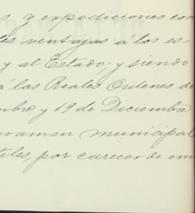 s y expediciones con
les ventajas á los es-
y al Estado; y siendo
á las Reales Ordenes de
mbre y 19 de Diciembre
vamen municipal
tiles por carecer de